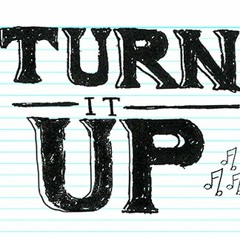 TURN
IT
UP